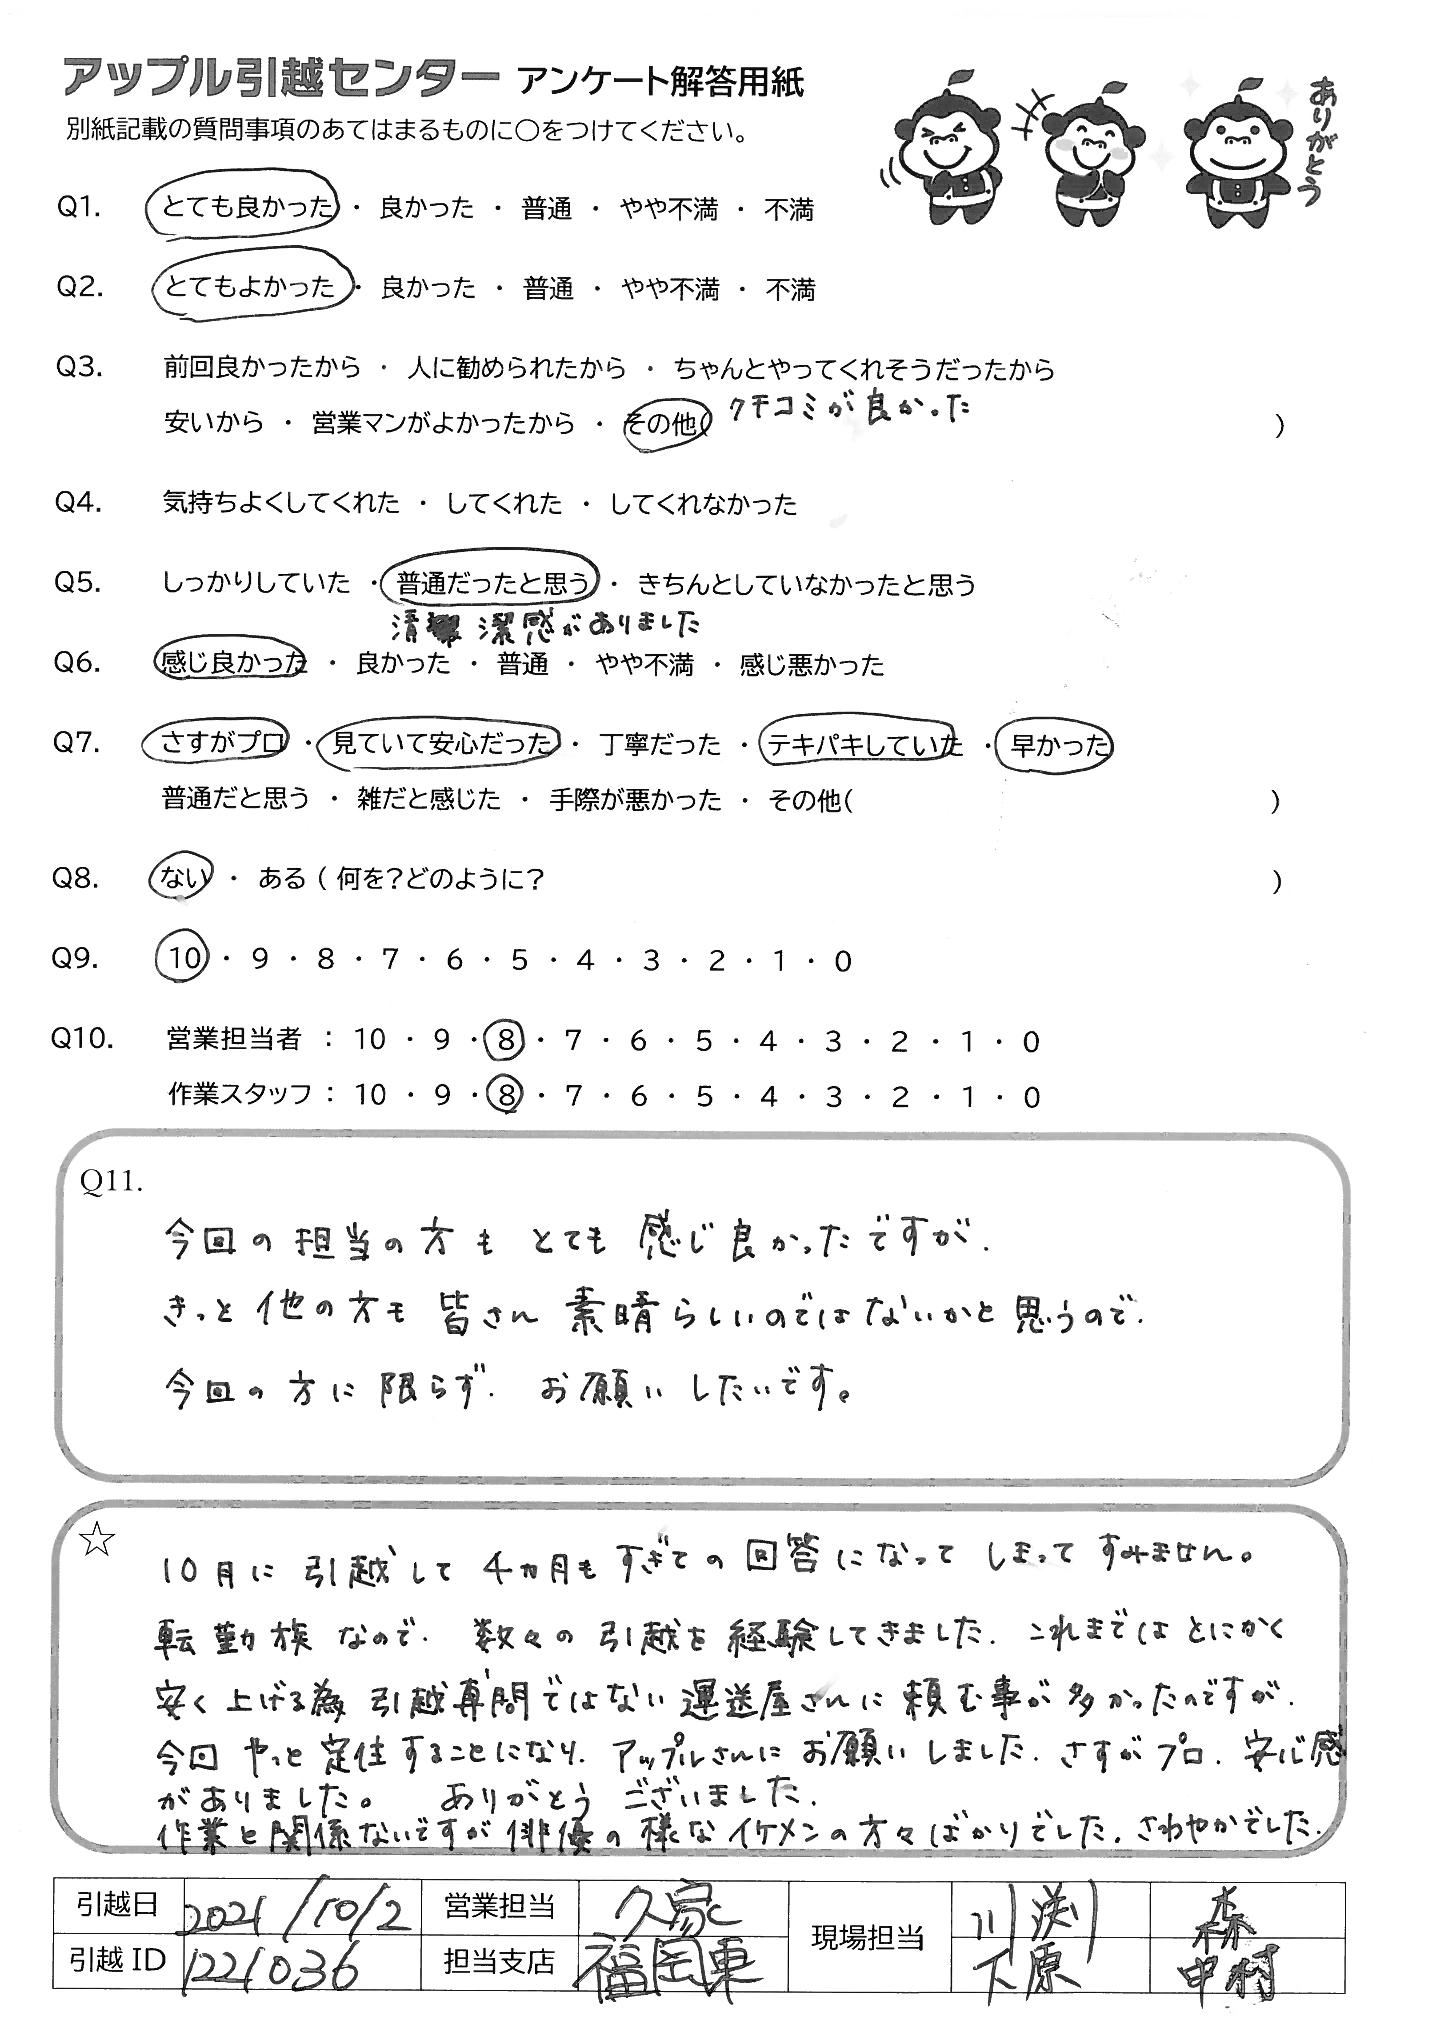 アップル引越センター アンケート解答用紙
別紙記載の質問事項のあてはまるものに○をつけてください。
ありがとう
Q1. とても良かった ・ 良かった ・ 普通 ・ やや不満 ・ 不満
Q2. とてもよかった ・ 良かった ・ 普通 ・ やや不満 ・ 不満
Q3. 前回良かったから ・ 人に勧められたから ・ ちゃんとやってくれそうだったから
安いから ・ 営業マンがよかったから ・ その他( クチコミが良かった )
Q4. 気持ちよくしてくれた ・ してくれた ・ してくれなかった
Q5. しっかりしていた ・ 普通だったと思う ・ きちんとしていなかったと思う
清潔感がありました
Q6. 感じ良かった ・ 良かった ・ 普通 ・ やや不満 ・ 感じ悪かった
Q7. さすがプロ ・ 見ていて安心だった ・ 丁寧だった ・ テキパキしていた ・ 早かった
普通だと思う ・ 雑だと感じた ・ 手際が悪かった ・ その他( )
Q8. ない ・ ある ( 何を?どのように? )
Q9. 10 ・ 9 ・ 8 ・ 7 ・ 6 ・ 5 ・ 4 ・ 3 ・ 2 ・ 1 ・ 0
Q10. 営業担当者 : 10 ・ 9 ・ 8 ・ 7 ・ 6 ・ 5 ・ 4 ・ 3 ・ 2 ・ 1 ・ 0
作業スタッフ : 10 ・ 9 ・ 8 ・ 7 ・ 6 ・ 5 ・ 4 ・ 3 ・ 2 ・ 1 ・ 0
Q11.
今回の担当の方も とても 感じ良かったですが、
きっと他の方も 皆さん 素晴らしいのではないかと思うので、
今回の方に限らず、お願いしたいです。
☆
10月に引越して 4ヵ月もすぎての回答になってしまってすみません。
転勤族なので、数々の引越を経験してきました。これまではとにかく
安く上げる為 引越専問ではない運送屋さんに頼む事が多かったのですが、
今回やっと定住することになり、アップルさんにお願いしました。さすがプロ、安心感
がありました。 ありがとうございました。
作業と関係ないですが俳優の様なイケメンの方々ばかりでした。さわやかでした。
引越日 2021/10/2 営業担当 久家 現場担当 川渕 森
引越ID 1221036 担当支店 福岡東 下原 中村